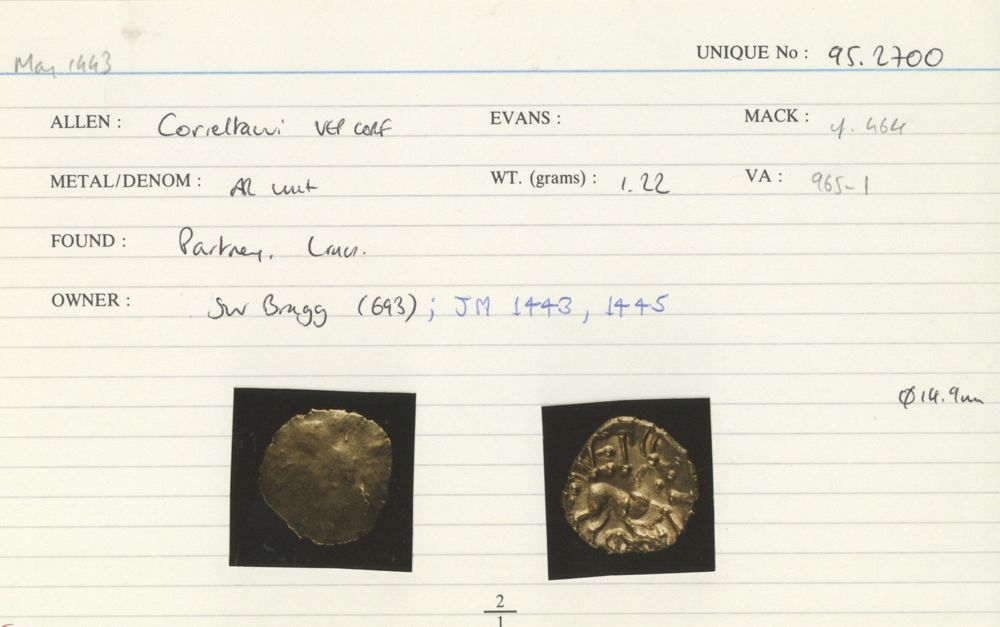 May 1443
UNIQUE No : 95.2700
ALLEN : Corieltauvi VEP CORF EVANS : MACK : cf. 464
METAL/DENOM : AR unit WT. (grams) : 1.22 VA : 965-1
FOUND : Partney, Lincs.
OWNER : SW Bragg (693); JM 1443, 1445
Ø 14.9mm
2
1